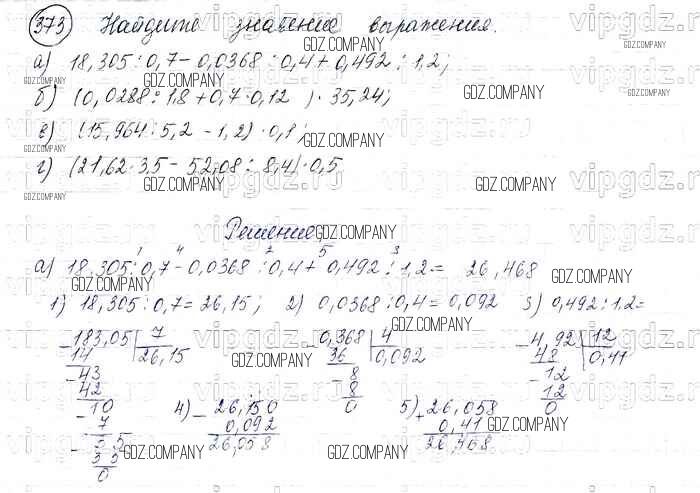 373 Найдите значение выражения.
а) 18,305 : 0,7 - 0,0368 : 0,4 + 0,492 : 1,2;
б) (0,0288 : 1,8 + 0,7 · 0,12) · 35,24;
в) (15,964 : 5,2 - 1,2) · 0,1;
г) (21,62 · 3,5 - 52,08 : 8,4) · 0,5
Решение,
1 4 2 5 3
а) 18,305 : 0,7 - 0,0368 : 0,4 + 0,492 : 1,2 = 26,468
1) 18,305 : 0,7 = 26,15; 2) 0,0368 : 0,4 = 0,092 3) 0,492 : 1,2 =
- 183,05 | 7 - 0,368 | 4 - 4,92 | 12
14 26,15 36 0,092 48 0,41
- 43 - 8 - 12
42 8 12
- 10 0 0
7
- 35
35
0
4) - 26,150 5) + 26,058
0,092 0,41
26,058 26,468
GDZ.COMPANY
vipgdz.ru